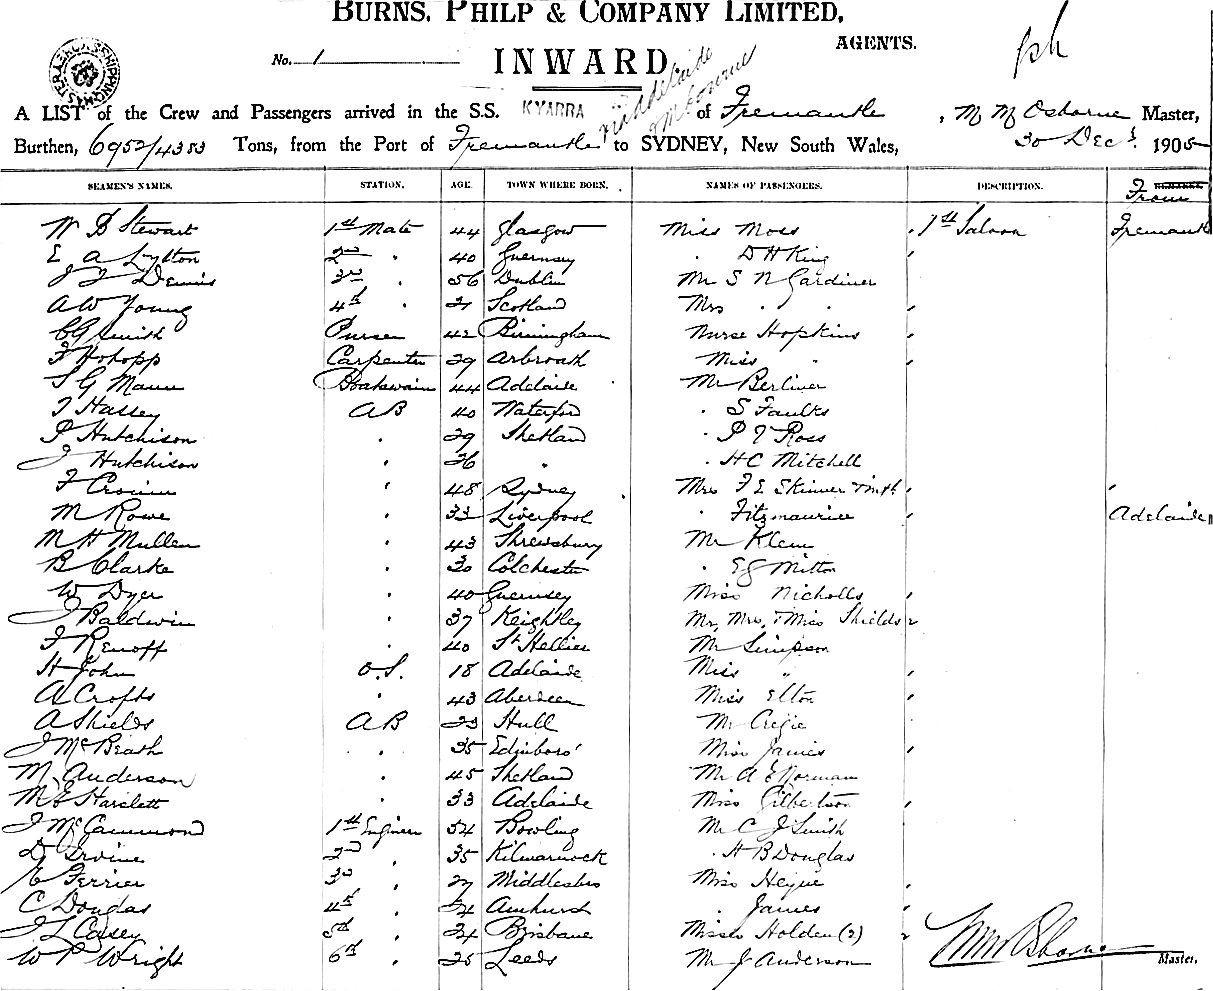 BURNS, PHILP & COMPANY LIMITED,
AGENTS.
No. 1
INWARD
A LIST of the Crew and Passengers arrived in the S.S. KYARRA of Fremantle, M M Osborne Master,
Burthen, 6952/4383 Tons, from the Port of Fremantle to SYDNEY, New South Wales, 30 Dec. 1905
SEAMEN'S NAMES. STATION. AGE. TOWN WHERE BORN. NAMES OF PASSENGERS. DESCRIPTION. From
W B Stewart 1st Mate 44 Glasgow Miss Moss 1st Saloon Fremantle
E A Lytton 2nd " 40 Guernsey " D H King
J J Dennis 3rd " 56 Dublin Mr S N Gardiner
A W Young 4th " 21 Scotland Mrs " "
C G Smith Purser 42 Birmingham Nurse Hopkins
F Hohopp Carpenter 29 Arbroath Miss "
S G Mann Boatswain 44 Adelaide Mr Berliner
T Hassey AB 40 Waterford " S Faulks
P Hutchison " 29 Shetland " P V Ross
J Hutchison " 26 " " H C Mitchell
F Cronin " 48 Sydney Mrs F E Skinner
M Rowe " 33 Liverpool " Fitzmaurice Adelaide
M H Mullen " 43 Shrewsbury Mr Klem
B Clarke " 30 Colchester " E G Mitton
W Dyer " 40 Guernsey Miss Nicholls
J Baldwin " 37 Keighley Mr, Mrs, & Miss Shields
F Renoff " 40 St Hellier Mr Simpson
H John O.S. 18 Adelaide Miss "
A Crofts " 43 Aberdeen Miss Elton
A Shields AB 23 Hull Mr
J McBeath " 35 Edinboro' Miss James
M Anderson " 45 Shetland Mr A E Norman
M E Harslett " 33 Adelaide Miss Gilbertson
J McCammond 1st Engineer 34 Bowling Mr C J Smith
D Irvine 2nd " 35 Kilmarnock " H B Douglas
E Ferrier 3rd " 27 Middlesbro Miss Heyne
C Douglas 4th " 24 Amhurst " James
J L Casey 5th " 24 Brisbane Misses Holden (2)
W P Wright 6th " 25 Leeds Mr J Anderson MM Osborne Master.